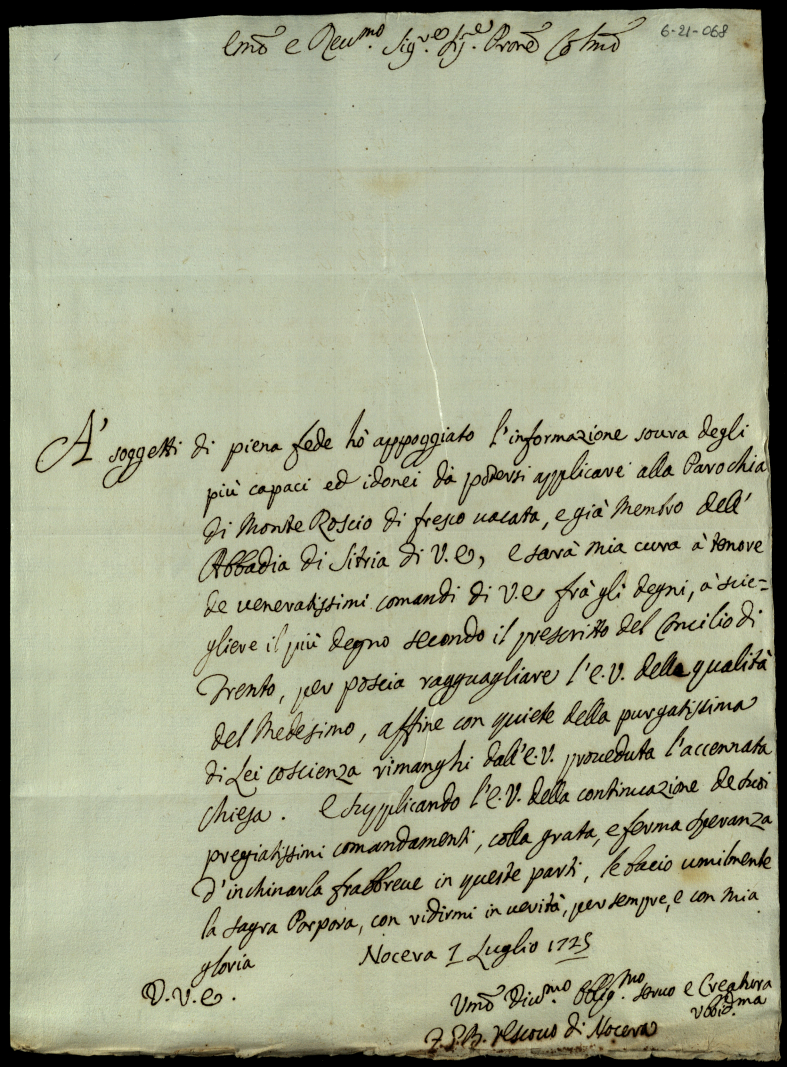 Emo e Reumo. Sigre. Sigre Prone Colmo
6-21-068
A' soggetti di piena fede hò appoggiato l'informazione soura degli
più capaci ed idonei dà potersi applicare alla Parochia
di Monte Roscio di fresco uacata, e già Membro dell'
Abbadia di Sitria di V.E, e sarà mia cura à tenore
de ueneratissimi comandi di V.E frà gli degni, à scie=
gliere il più degno secondo il prescritto del Concilio di
Trento, per poscia ragguagliare l'E.V. della qualità
del Medesimo, affine con quiete della purgatissima
di Lei coscienza rimanghi dall'E.V. proueduta l'accennata
Chiesa. E supplicando l'E.V. della continuazione de suoi
pregiatissimi comandamenti, colla grata, e ferma speranza
d'inchinarla frabbreue in queste parti, le bacio umilmente
la sagra Porpora, con ridirmi in uerità, per sempre, e con mia
gloria
Nocera 1 Luglio 1725
D.V.E.
Umo Diumo. Obligmo. seruo e Creatura
ubbidma
Vescouo di Nocera